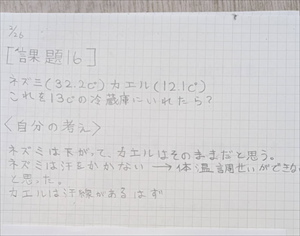 2/26
[課題16]
ネズミ(32.2c°) カエル(12.1c°)
これを13c°の冷蔵庫にいれたら?
<自分の考え>
ネズミは下がって、カエルはそのままだと思う。
ネズミは汗をかかない→体温調せいができな
と思った。
カエルは汗線があるはず